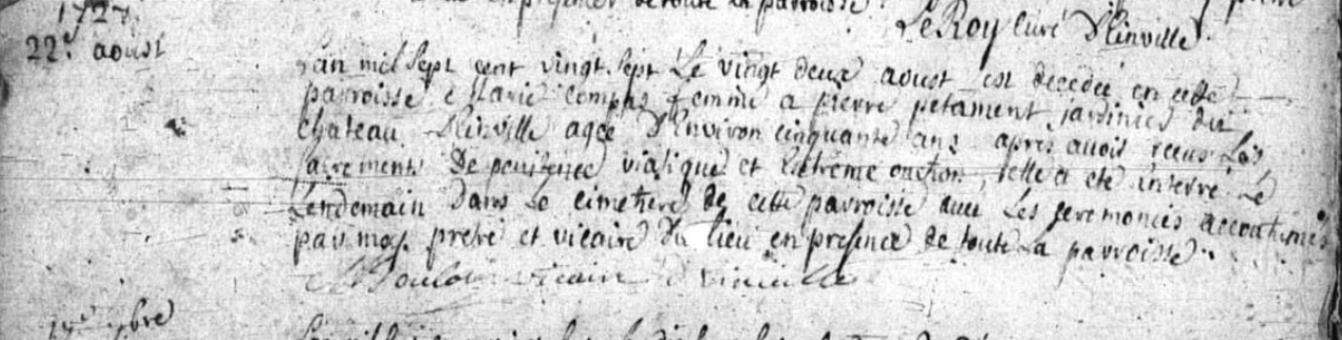 1727
de toute la parroisse.
Le Roy curé d'Einville.
22e aoust
L'an mil sept cent vingt sept Le vingt deux aoust est decedée en cette
parroisse Marie Compas femme a pierre petament jardinier du
chateau d'Einville agée d'Environ cinquante ans apres avoir receus Les
sacrements De penitence viatique et Extreme onction, elle a eté interré Le
Lendemain Dans Le cimetiere de cette parroisse avec Les ceremonies accoutumés
par moy pretre et vicaire du lieu en presence de toute La parroisse.
vicaire d'einville
bre